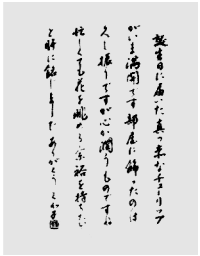 誕生日に届いた真っ赤なチューリップ
がいま満開です 部屋に飾ったのは
久し振りですが心が潤うものですね
忙しくても花を眺める余裕を持ちたい
と肝に銘じました ありがとう